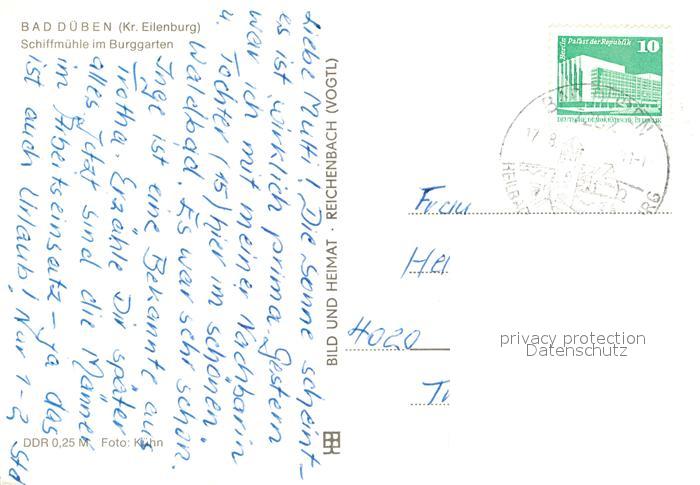 BAD DÜBEN (Kr. Eilenburg)
Schiffmühle im Burggarten
Liebe Mutti! Die Sonne scheint –
es ist wirklich prima. Gestern
war ich mit meiner Nachbarin
u. Tochter (15) hier im schönen
Waldbad. Es war sehr schön.
Inge ist eine Bekannte aus
Trotha. Erzähle Dir später
alles. Jetzt sind die Männer
im Arbeitseinsatz – ja das
ist auch Urlaub! Nur 1-2 Std
DDR 0,25 M Foto: Kühn
BILD UND HEIMAT · REICHENBACH (VOGTL)
Berlin Palast der Republik 10
DEUTSCHE DEMOKRATISCHE REPUBLIK
17.8.
Frau
4020
privacy protection
Datenschutz